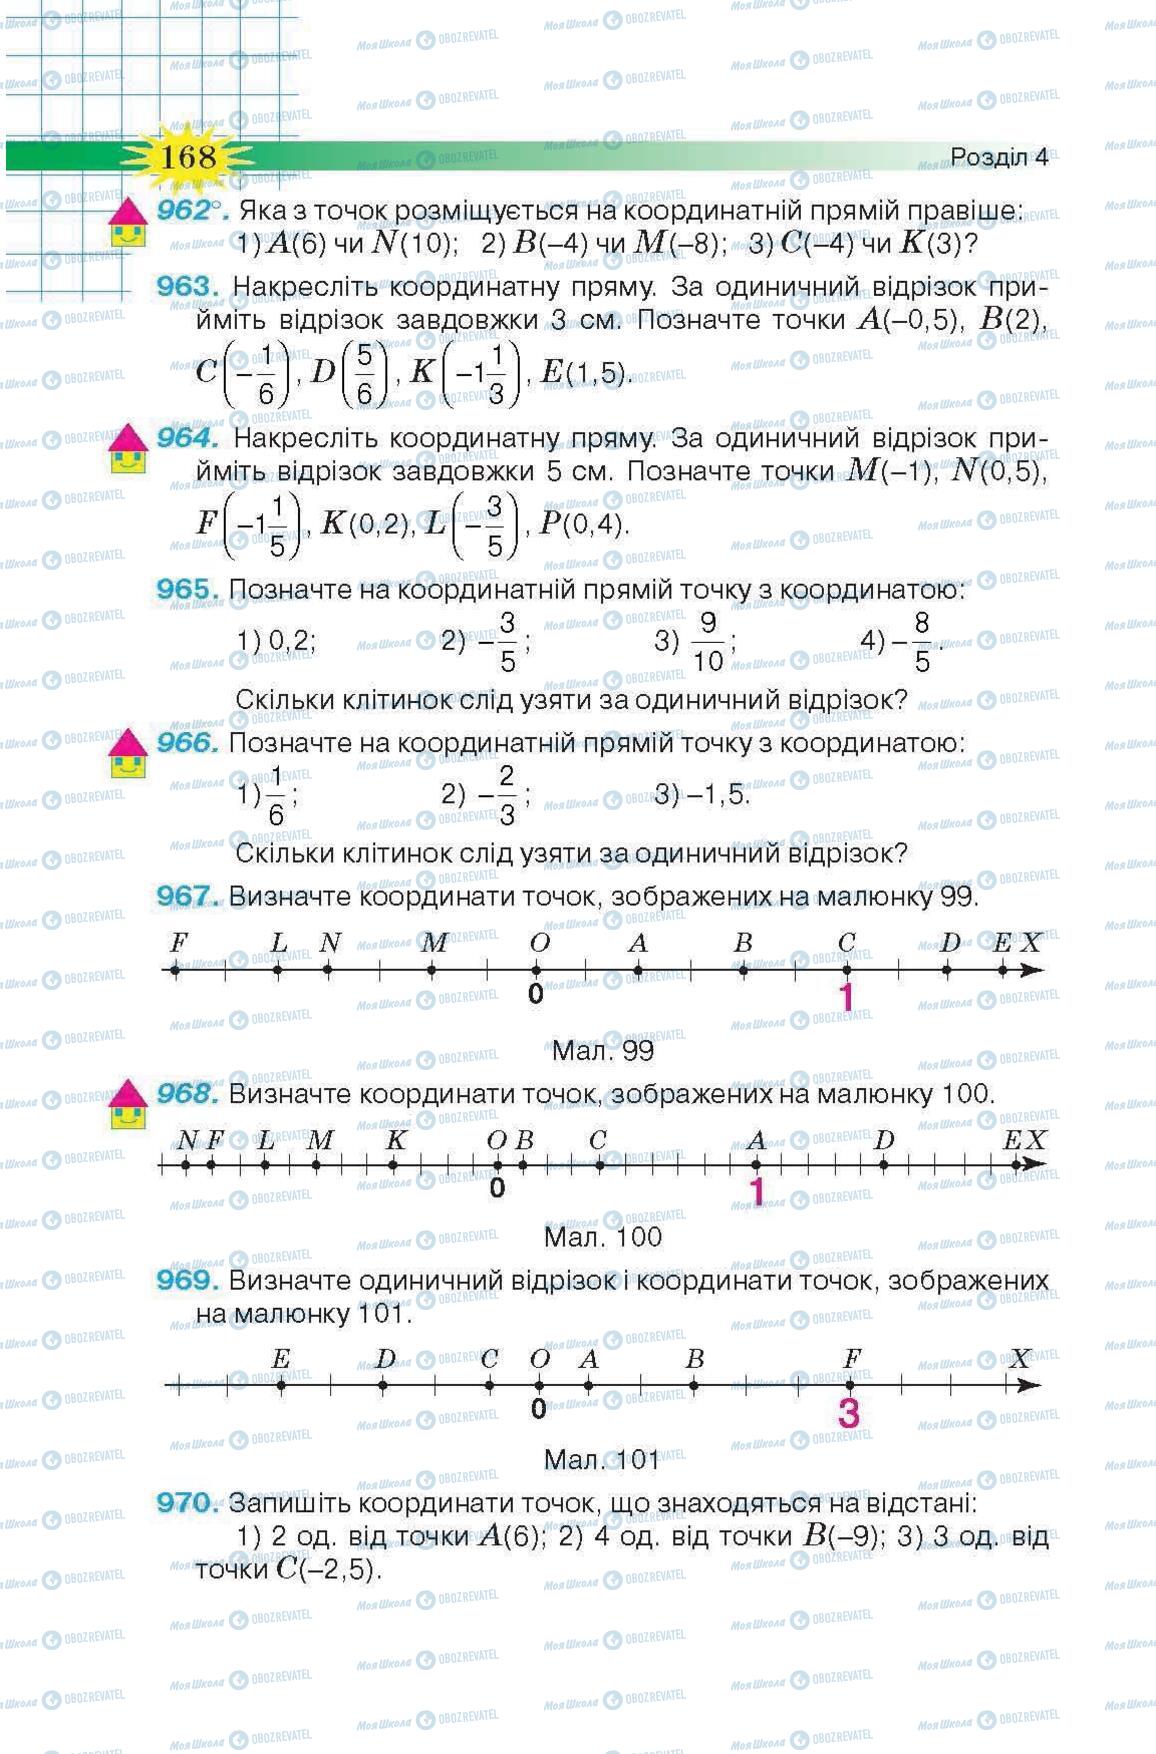 168
Розділ 4
962°. Яка з точок розміщується на координатній прямій правіше:
1) A(6) чи N(10); 2) B(–4) чи M(–8); 3) C(–4) чи K(3)?
963. Накресліть координатну пряму. За одиничний відрізок при-
йміть відрізок завдовжки 3 см. Позначте точки A(–0,5), B(2),
C(–1/6), D(5/6), K(–1 1/3), E(1,5).
964. Накресліть координатну пряму. За одиничний відрізок при-
йміть відрізок завдовжки 5 см. Позначте точки M(–1), N(0,5),
F(–1 1/5), K(0,2), L(–3/5), P(0,4).
965. Позначте на координатній прямій точку з координатою:
1) 0,2; 2) –3/5; 3) 9/10; 4) –8/5.
Скільки клітинок слід узяти за одиничний відрізок?
966. Позначте на координатній прямій точку з координатою:
1) 1/6; 2) –2/3; 3) –1,5.
Скільки клітинок слід узяти за одиничний відрізок?
967. Визначте координати точок, зображених на малюнку 99.
F L N M O A B C D E X
0 1
Мал. 99
968. Визначте координати точок, зображених на малюнку 100.
N F L M K O B C A D E X
0 1
Мал. 100
969. Визначте одиничний відрізок і координати точок, зображених
на малюнку 101.
E D C O A B F X
0 3
Мал. 101
970. Запишіть координати точок, що знаходяться на відстані:
1) 2 од. від точки A(6); 2) 4 од. від точки B(–9); 3) 3 од. від
точки C(–2,5).
Моя Школа OBOZREVATEL